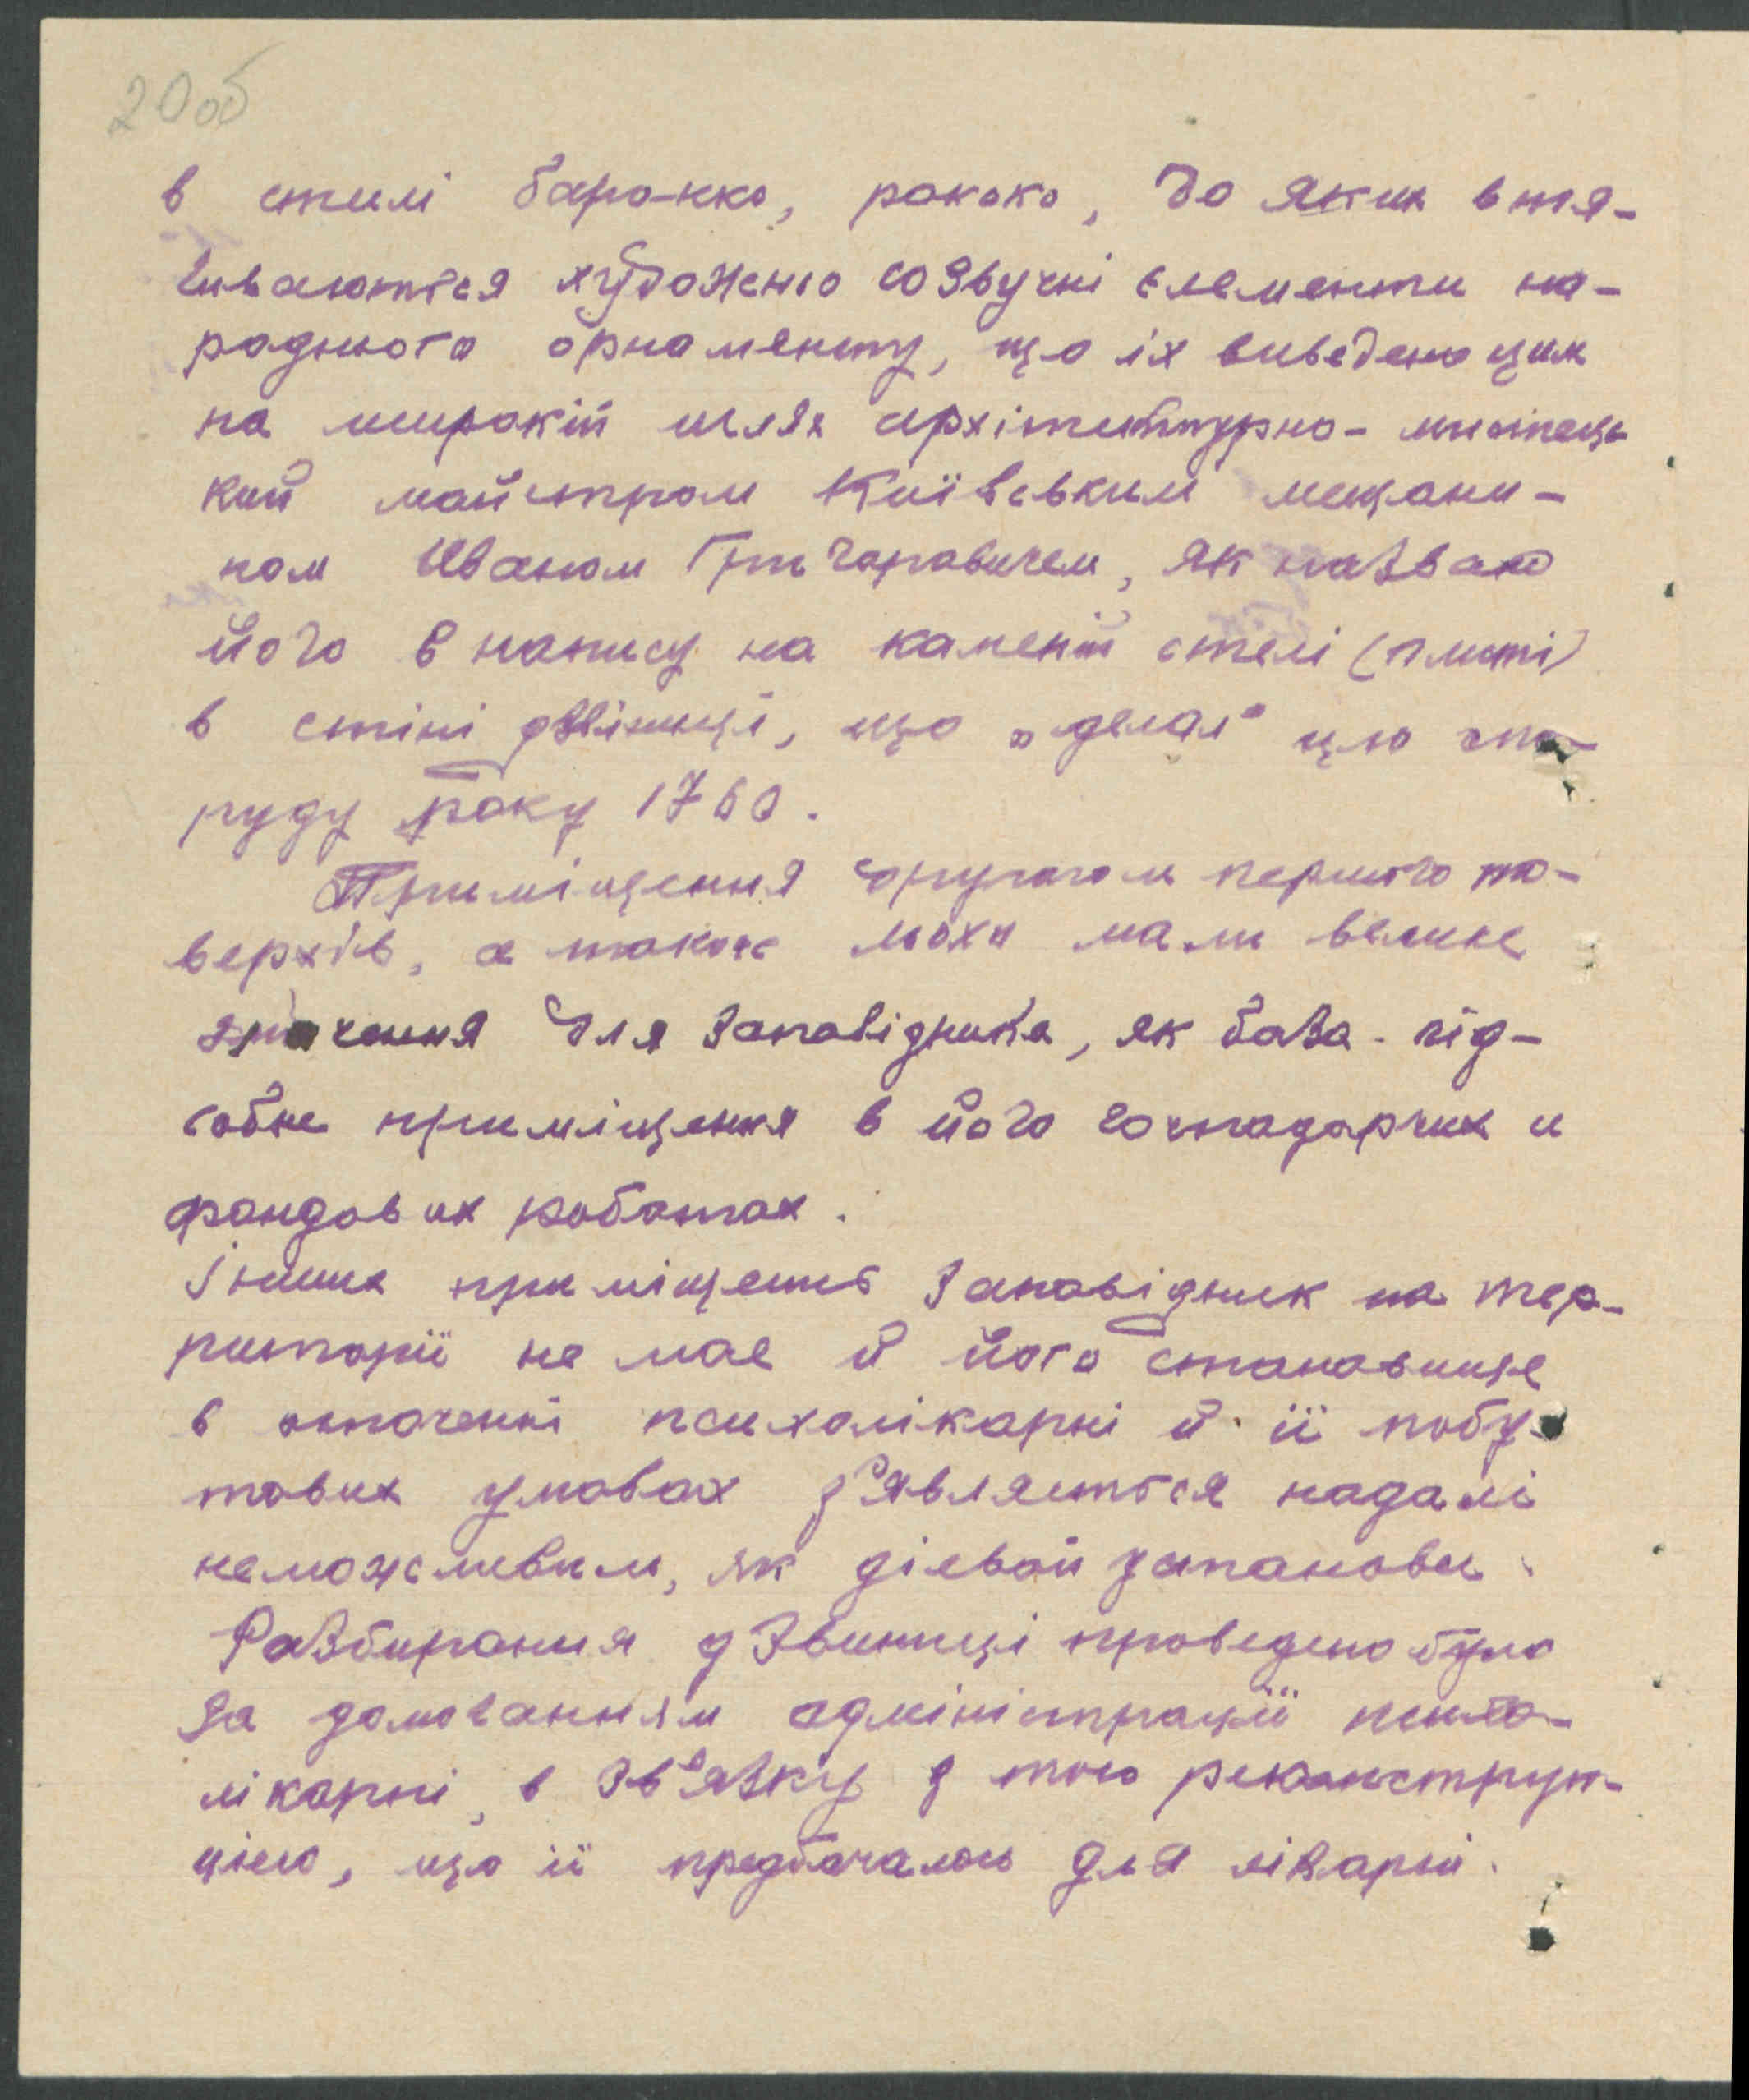 20об
в стилі барокко, рококо, до яких втя-
гиваються художньо созвучні елементи на-
родного орнаменту, що іх виведено цим
на широкій шлях архітектурно-мистець
кий майстром Київським мещани-
ном Иваном Григоровичем, як названо
його в напису на каменій стелі (плиті)
в стіні дзвіниці, що „делал" цю спо-
руду року 1760.
Приміщення другого и першого по-
верхів, а також льоха мали велике
значення для Заповідника, як база - під-
собне приміщення в його господарчих и
фондових роботах.
Інших приміщень Заповідник на тер-
риторії не має й його становище
в оточенні психолікарні й її побу-
тових умовах з'являється надалі
неможливим, як дієвой установи.
Разбирання дзвиниці проведено було
за домоганням адміністрації псих-
лікарні, в зв'язку з тою реконструк-
цією, що її предбачалось для лікарні.